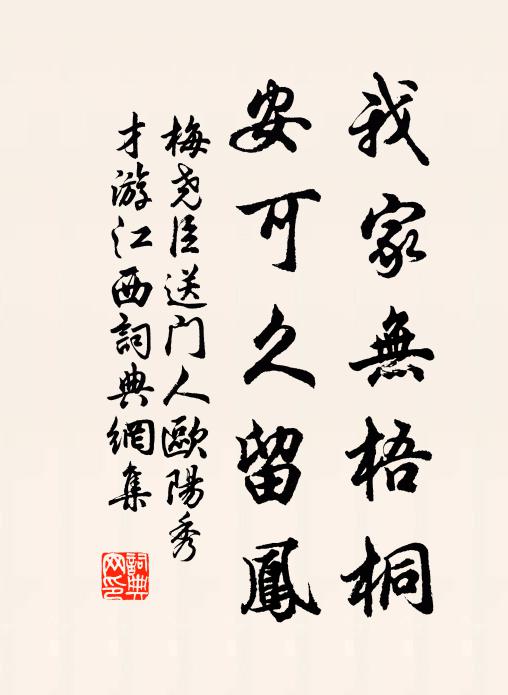 我家無梧桐
安可久留鳳
梅尧臣送门人歐陽秀
才游江西詞典網集
詞典
网印